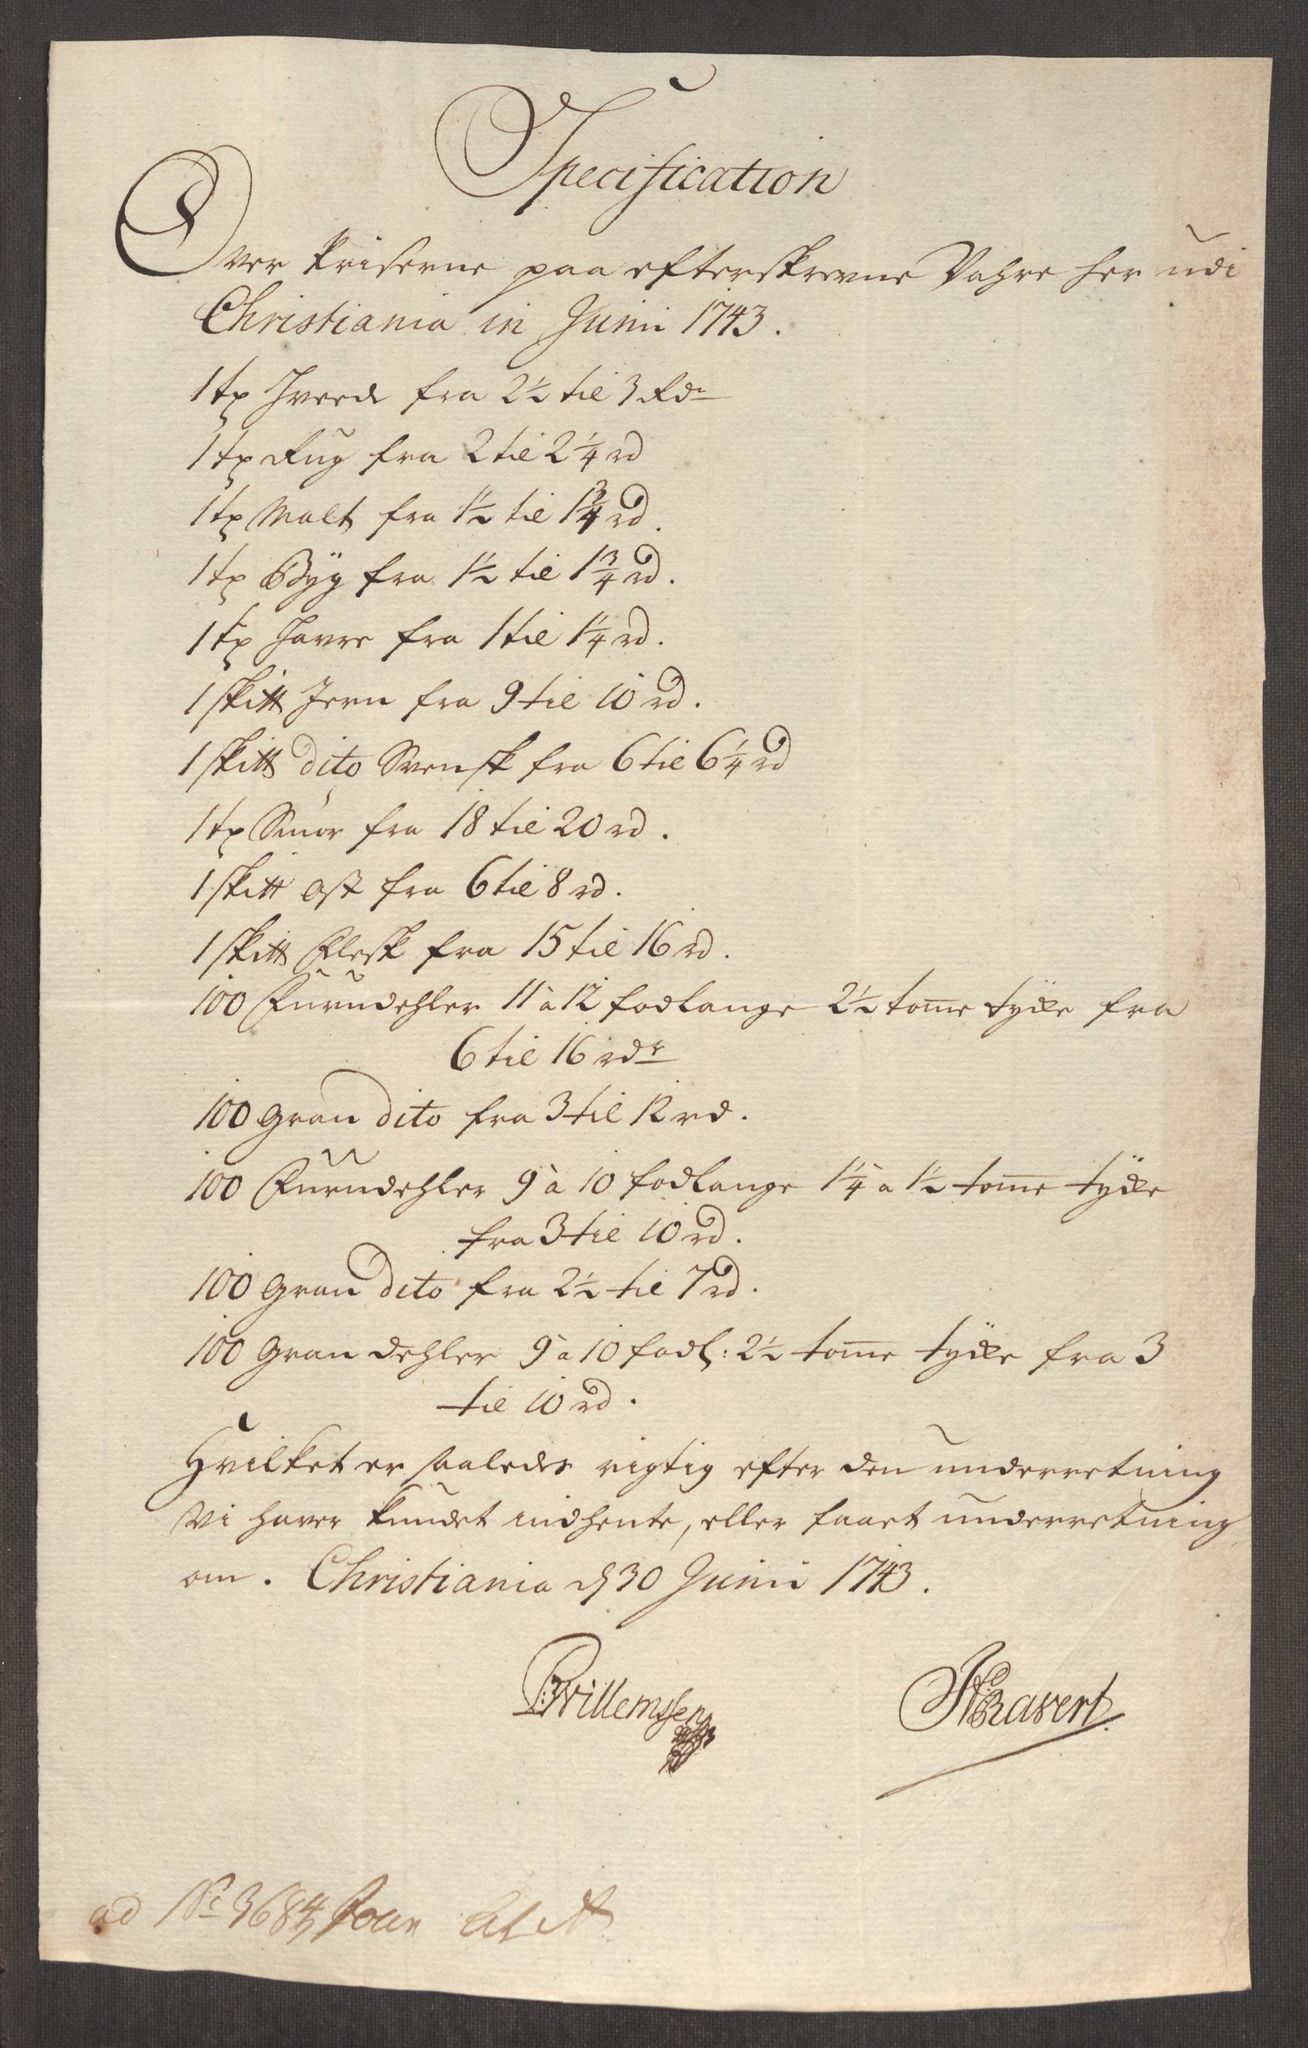 Specification
Over Priserne paa efterskrevne Vahre her udi
Christiania in Junii 1743.
1 tø Hvede fra 2½ til 3 Rdr
1 tø Rug fra 2 til 2¼ rd
1 tø Malt fra 1½ til 1¾ rd.
1 tø Byg fra 1½ til 1¾ rd.
1 tø Havre fra 1 til 1¼ rd.
1 skitt Jern fra 9 til 10 rd.
1 skitt dito Svensk fra 6 til 6¼ rd
1 tø Smør fra 18 til 20 rd.
1 skitt Ost fra 6 til 8 rd.
1 skitt Flesk fra 15 til 16 rd.
100 Furudehler 11 à 12 fodlange 2½ tome tycke fra
6 til 16 rdr
100 Gran dito fra 3 til 12 rd.
100 Furudehler 9 à 10 fodlange 1¼ a 1½ tome tycke
fra 3 til 10 rd.
100 Gran dito fra 2½ til 7 rd.
100 Gran dehler 9 à 10 fodl: 2½ tome tycke fra 3
til 10 rd.
Hvilket er saaledes rigtig efter den underretning
Vi haver kundet indhente, eller faaet underretning
om. Christiania d 30 Junii 1743.
Willemssen
Ravert
ad No 3684